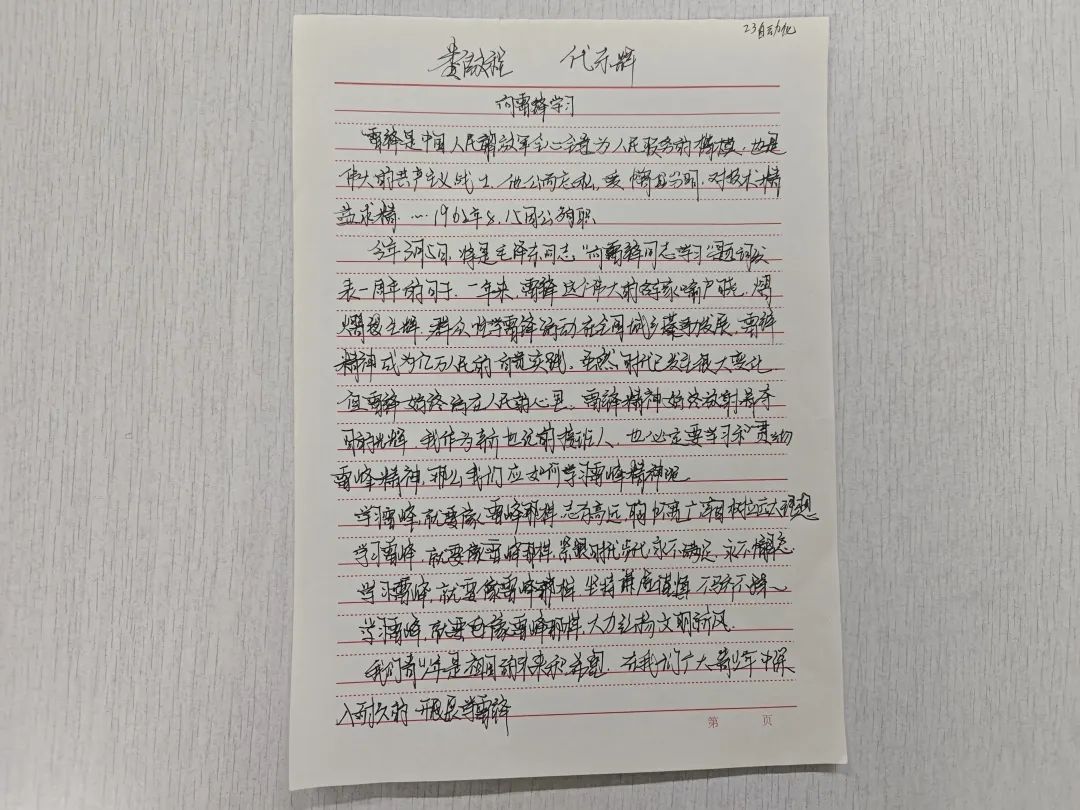 23自动化
向雷锋学习
雷锋是中国人民解放军全心全意为人民服务的楷模,也是
伟大的共产主义战士,他公而忘私,爱憎分明,对技术精
益求精.…1962年8.15因公殉职.
今年3月5日,将是毛泽东同志,"向雷锋同志学习"题词发
表一周年的日子.一年来,雷锋这个伟大的家喻户晓,熠
熠生辉,群众性学雷锋活动在全国城乡蓬勃发展,雷锋
精神成为亿万人民的自觉实践.虽然时代发生很大变化
但雷锋始终活在人民的心里,雷锋精神始终放射着夺
目的光辉,我作为新世纪的接班人、也必定要学习和
雷峰精神,那么我们应如何学习雷峰精神呢
学习雷峰,就要像雷峰那样,志存高远,胸怀树立远大理想
学习雷峰,就要像雷峰那样,紧跟时代步伐永不满足,永不懈怠
学习雷峰,就要像雷峰那样,坚持谦虚谨慎不骄不躁
学习雷峰,就要像雷峰那样,大力弘扬文明新风.
我们青少年是祖国的未来和希望,在我们广大青少年中深
入耐久的开展学雷锋
第 页